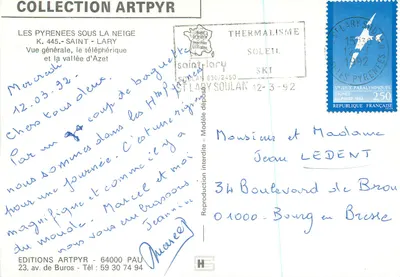 COLLECTION ARTPYR
LES PYRENEES SOUS LA NEIGE
K. 445.-SAINT-LARY
Vue générale, le téléphérique
et la vallée d'Azet
Mercredi
12.03.92.
Chers tous deux.
Par un coup de baguette
nous sommes dans les Htes Pyrénées
pour une journée. C'est une région
magnifique et comme il y a
du monde. Marcel et moi
nous vous embrassons.
Jean
Marcel
EDITIONS ARTPYR - 64000 PAU
23, av. de Buros - Tél. 59 30 74 94
Reproduction interdite - Modèle déposé
saint-lary
THERMALISME
SOLEIL
SKI
ST LARY SOULAN 12-3-92
2,50
RÉPUBLIQUE FRANÇAISE
Monsieur et Madame
Jean LEDENT
34 Boulevard de Brou
01000 - Bourg en Bresse